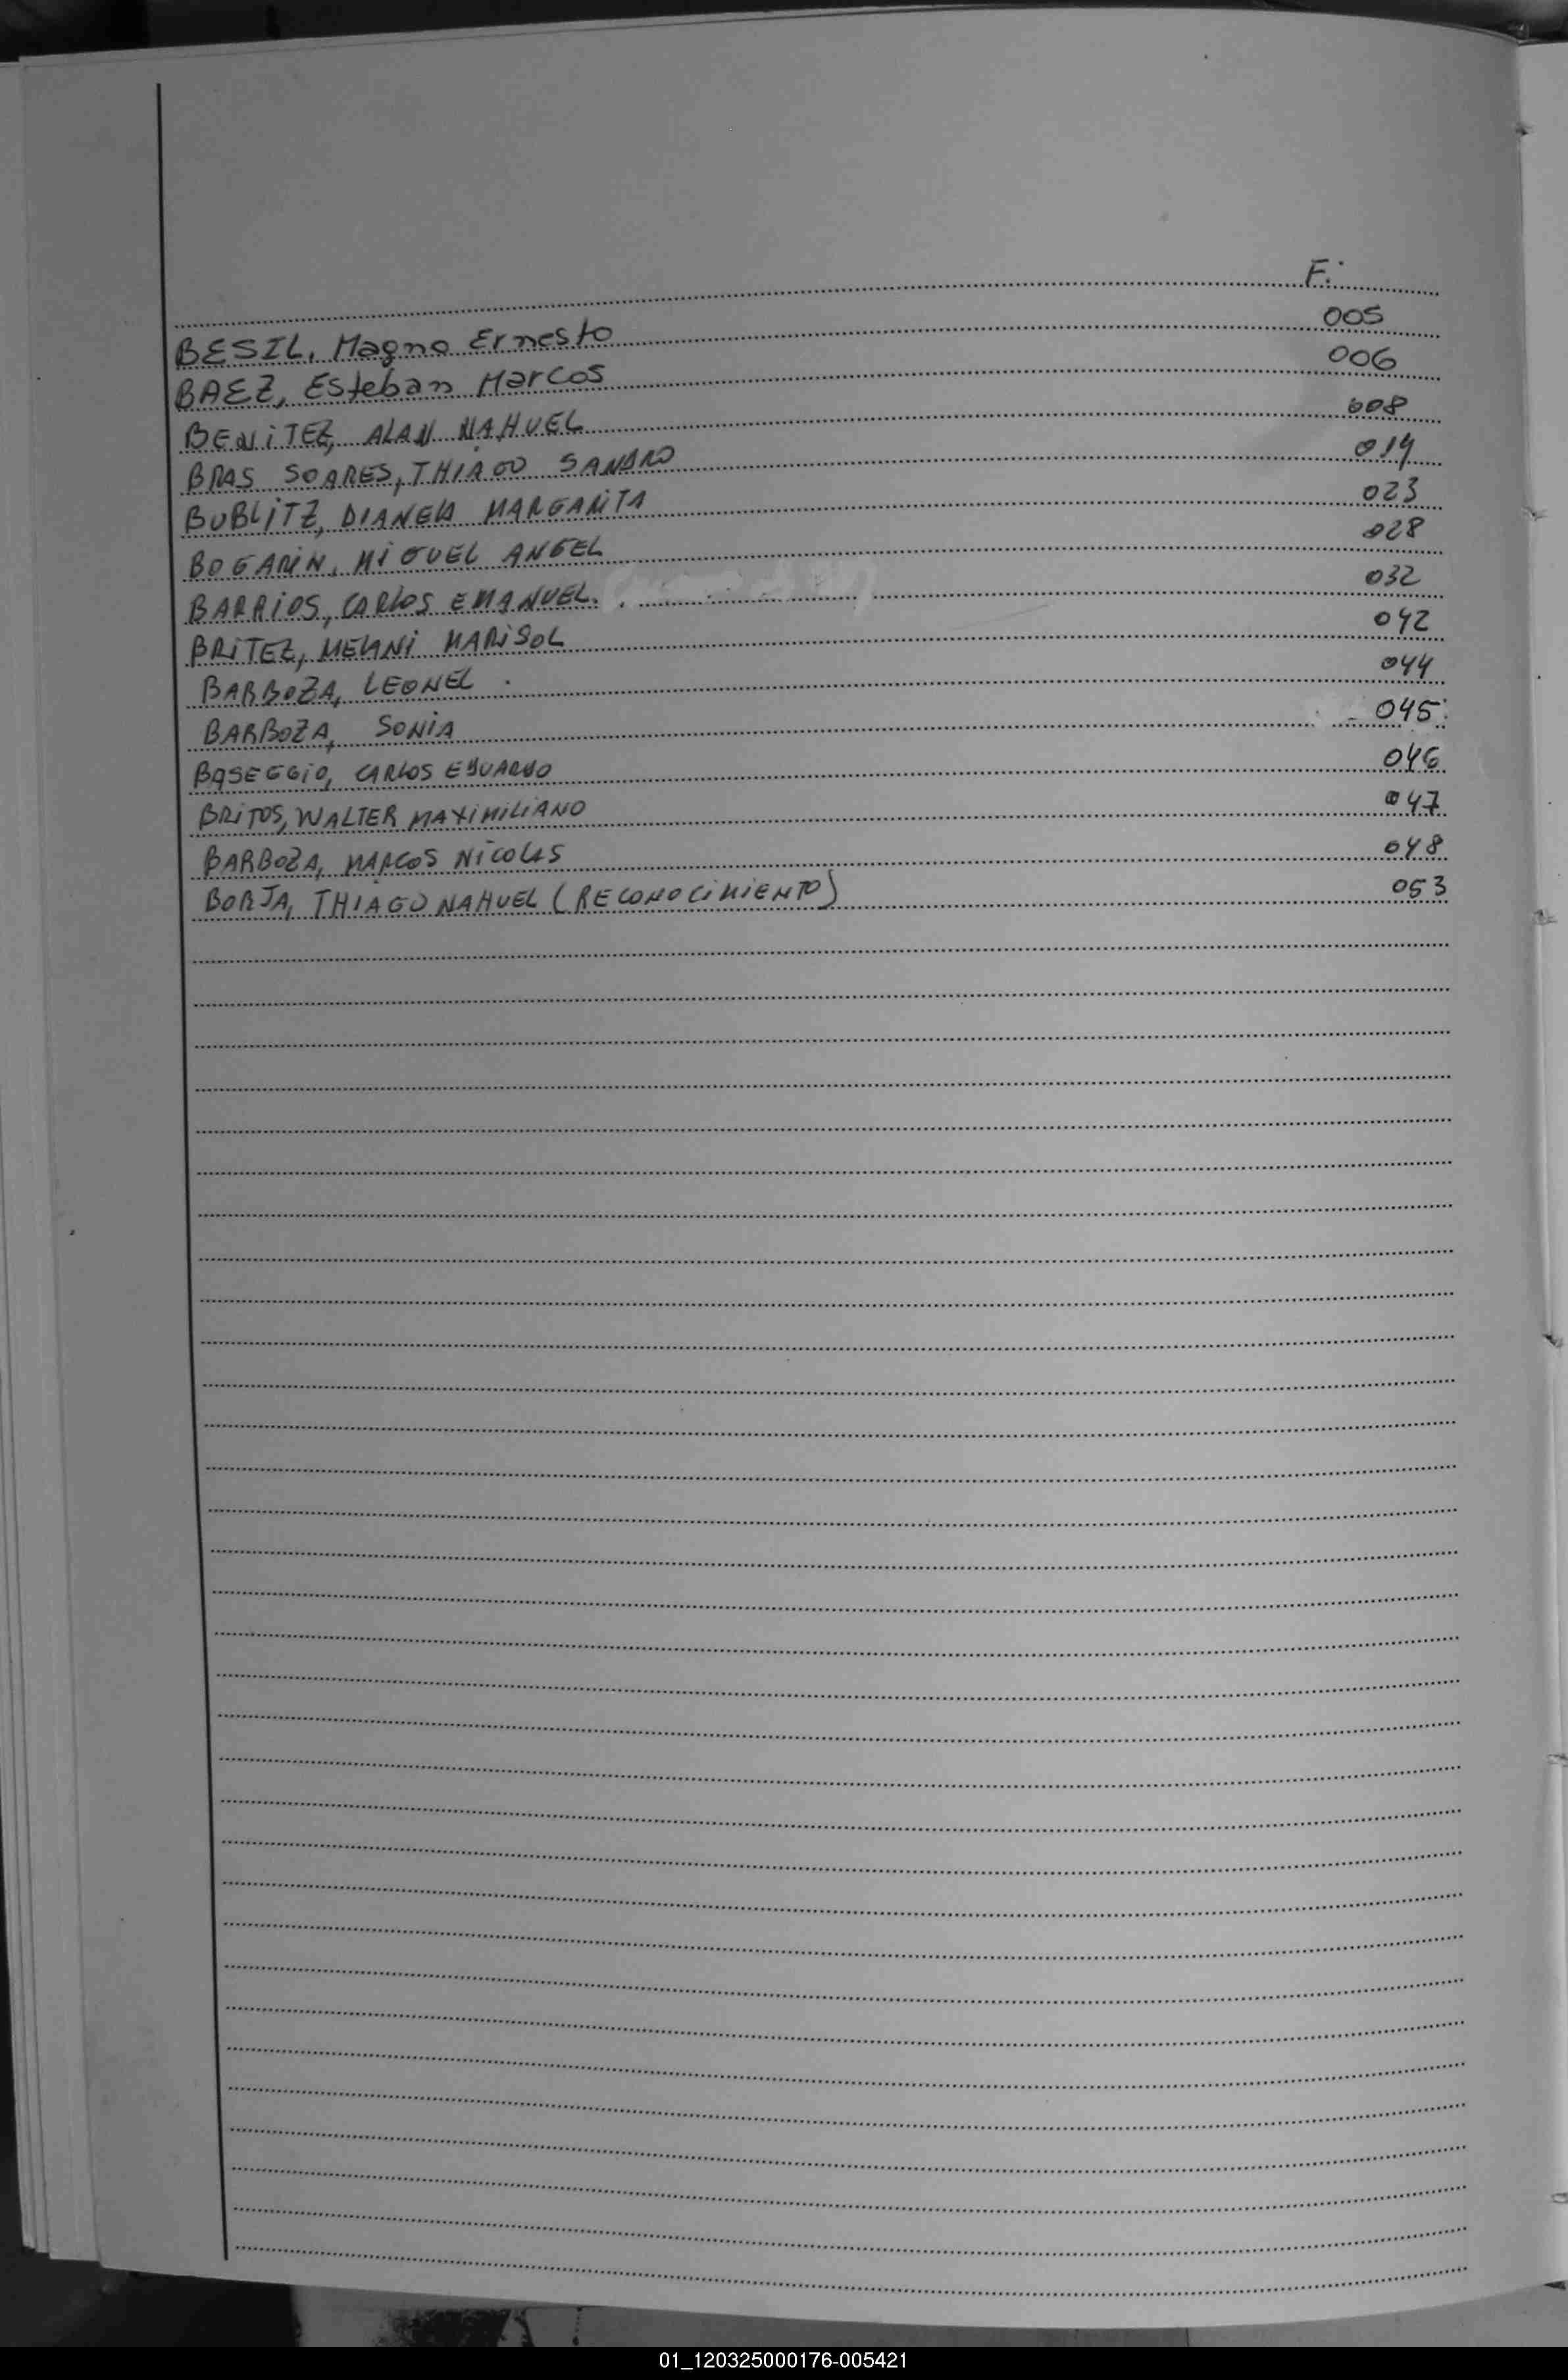 F.
BESIL, Magno Ernesto 005
BAEZ, Esteban Marcos 006
BENITEZ, ALAN NAHUEL 008
BRAS SOARES, THIAGO SANDRO 014
BUBLITZ, DIANELA MARGARITA 023
BOGARIN, MIGUEL ANGEL 028
BARRIOS, CARLOS EMANUEL. 032
BRITEZ, MELANI MARISOL 042
BARBOZA, LEONEL 044
BARBOZA, SONIA 045
BASEGGIO, CARLOS EDUARDO 046
BRITOS, WALTER MAXIMILIANO 047
BARBOZA, MARCOS NICOLAS 048
BORJA, THIAGO NAHUEL (RECONOCIMIENTO) 053
01_120325000176-005421